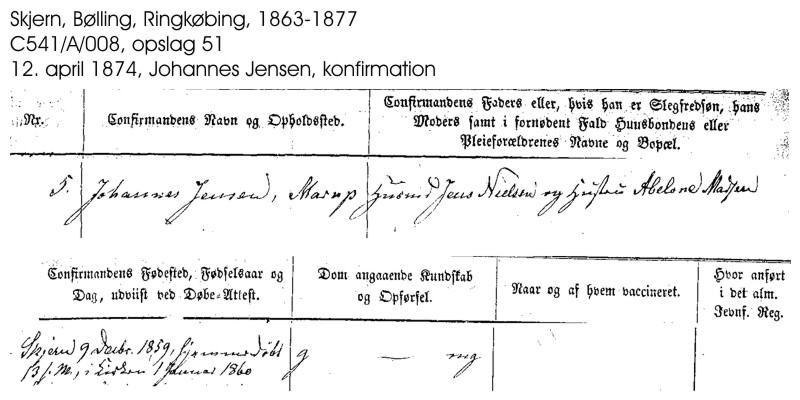 Skjern, Bølling, Ringkøbing, 1863-1877
C541/A/008, opslag 51
12. april 1874, Johannes Jensen, konfirmation
Nr.
Confirmandens Navn og Opholdssted.
Confirmandens Faders eller, hvis han er Slegfredsøn, hans
Moders samt i fornødent Fald Huusbondens eller
Pleieforældrenes Navne og Bopæl.
5. Johannes Jensen, Marup Husmd Jens Nielsen og Hustru Abelone Madsen
Confirmandens Fødested, Fødselsaar og
Dag, udviist ved Døbe-Attest.
Dom angaaende Kundskab
og Opførsel.
Naar og af hvem vaccineret.
Hvor anført
i det alm.
Jevnf. Reg.
Skjern 9 Decbr. 1859, hjemmedøbt
13 s. M., i Kirken 1 Januar 1860
g — mg